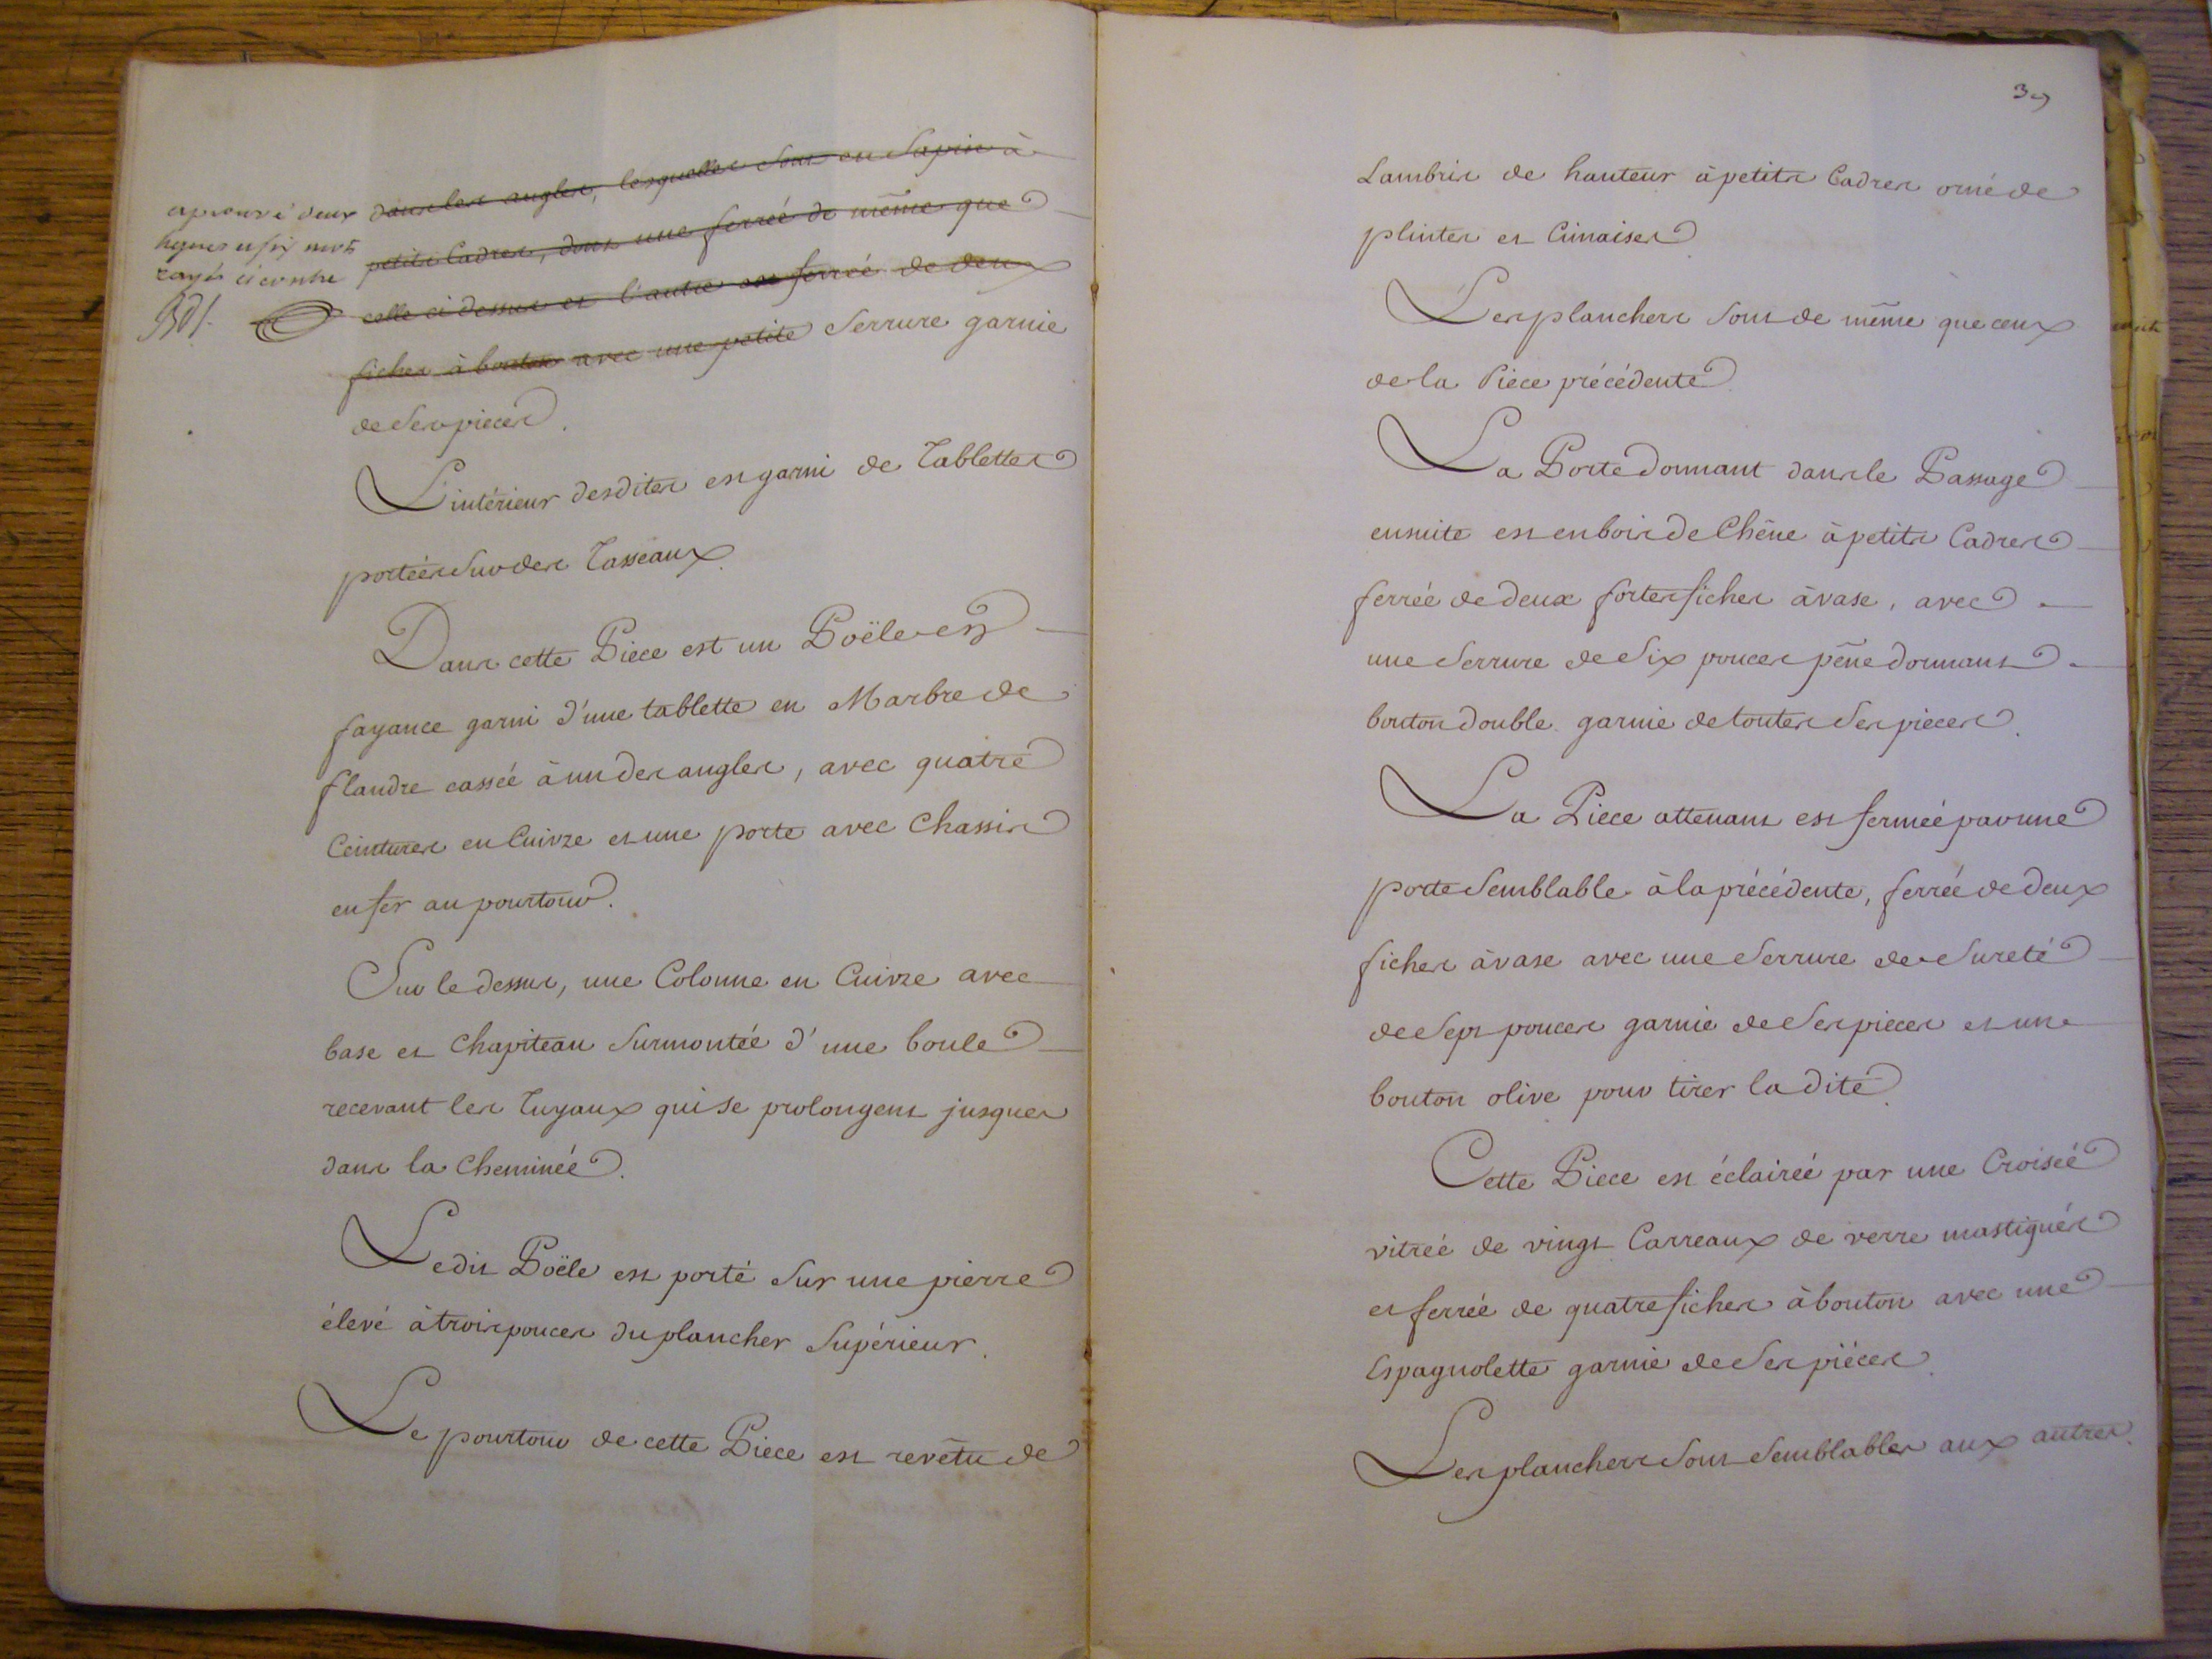 aprouvé deux
lignes et six mots
rayés ci contre
dans les angles, lesquelles sont en Sapin à
petits Cadres, dont une ferrée de même que
celle ci dessus et l'autre est ferrée de deux
fiches à bouton avec une petite Serrure garnie
de Ses pieces.
L'intérieur desdites est garni de Tablettes
portées Sur des Tasseaux.
Dans cette Piece est un Poële en
fayance garni d'une tablette en Marbre de
flandre cassée à un des angles, avec quatre
Ceintures en Cuivre et une porte avec Chassis
en fer au pourtour.
Sur le dessus, une Colonne en Cuivre avec
base et Chapiteau Surmontée d'une boule
recevant les Tuyaux qui se prolongent jusques
dans la Cheminée.
Ledit Poële est porté Sur une pierre
élevé à trois pouces du plancher Supérieur.
Le pourtour de cette Piece est revêtu de
39
Lambris de hauteur à petits Cadres orné de
plintes et Cimaises
Les planchers Sont de même que ceux
de la Piece précédente.
La Porte donnant dans le Passage
ensuite est en bois de Chêne à petits Cadres
ferrée de deux fortes fiches à vase, avec
une Serrure de Six pouces pêne dormant
bouton double garnie de toutes Ses pieces.
La Piece attenant est fermée par une
porte Semblable à la précédente, ferrée de deux
fiches à vase avec une Serrure de Sureté
de Sept pouces garnie de Ses pieces et un
bouton olive pour tirer ladite.
Cette Piece est éclairée par une Croisée
vitrée de vingt Carreaux de verre mastiqués
et ferrée de quatre fiches à bouton avec une
Espagnolette garnie de Ses piéces.
Les planchers Sont Semblables aux autres.